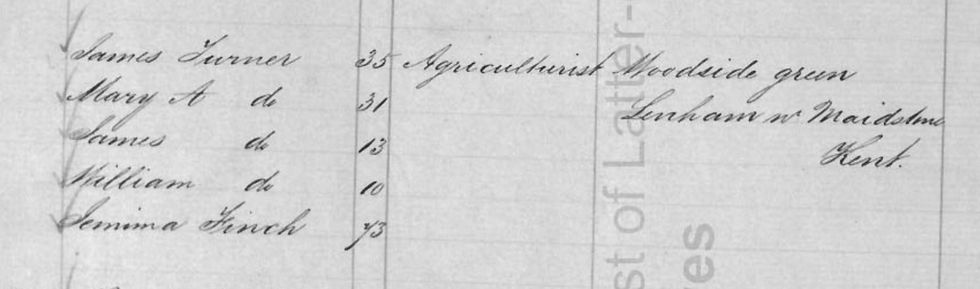 James Turner 35 Agriculturist Woodside green
Mary A do 31 Lenham nr Maidstone
James do 13 Kent.
William do 10
Jemima Finch 73
st of Latter-
es